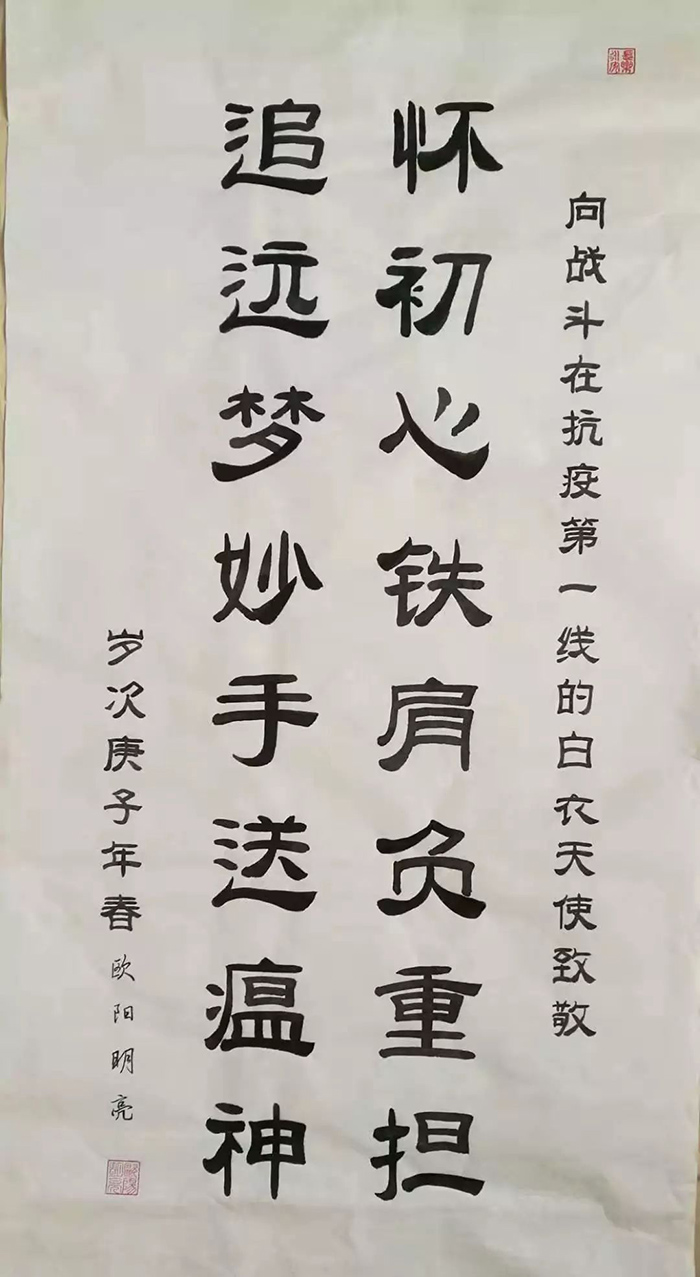 向战斗在抗疫第一线的白衣天使致敬
怀初心铁肩负重担
追远梦妙手送瘟神
岁次庚子年春欧阳明亮